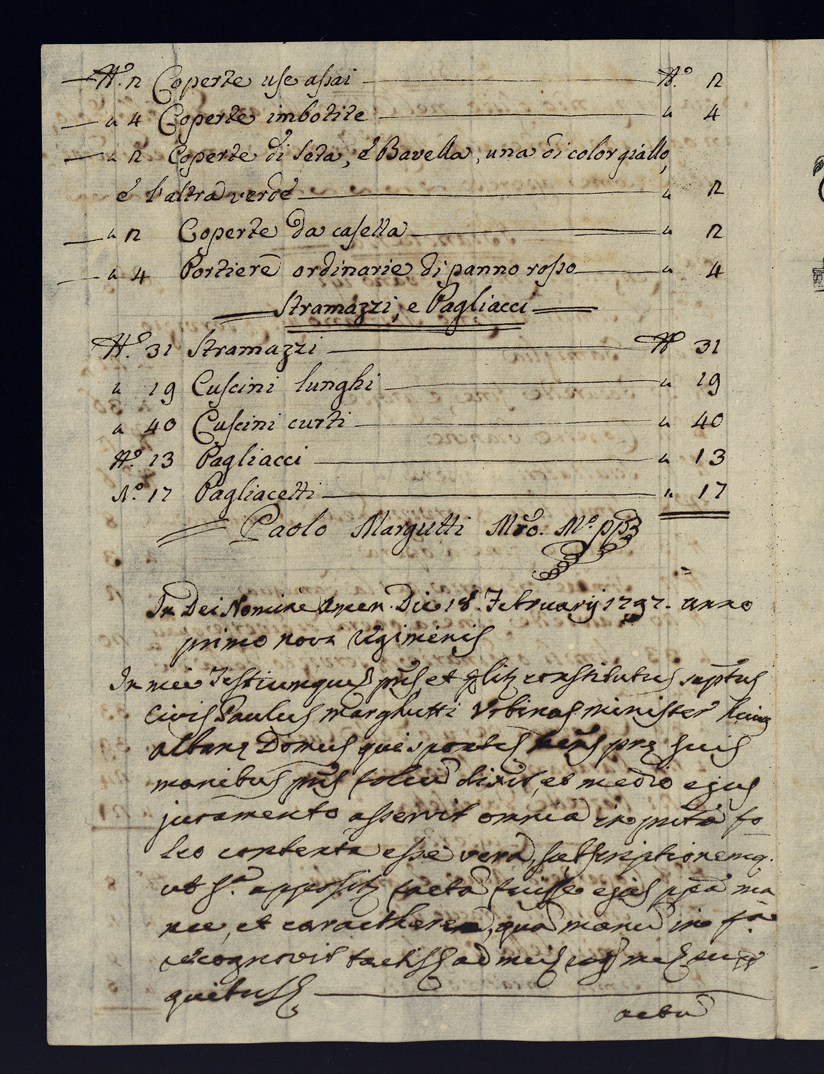 N.º 2 Coperte use assai N.º 2
a 4 Coperte imbotite a 4
a 2 Coperte di seta, e Bavella, una di color giallo,
e l'altra verde a 2
a 2 Coperte da casella a 2
a 4 Portiere ordinarie di panno rosso a 4
Stramazzi, e Pagliacci
N.º 31 Stramazzi N.º 31
a 19 Cuscini lunghi a 19
a 40 Cuscini curti a 40
N.º 13 Pagliacci a 13
N.º 17 Pagliacetti a 17
Paolo Margutti Mro. M.º pp
In Dei Nomine Amen. Die 18. February 1797. anno
primo novi regiminis
In mei Testiumque et constitutus
Civis Paulus Marghutti Urbinas minister
Albana Domus qui sponte suis
manibus dixit, et medio ejus
juramento asseruit omnia in fo
leo contenta esse vera, subscriptionemq.
ut s.ª appositi facta fuisse ejus ppa ma
nu, et caracthere, qua manu in
recognovit tactis ad
quibus
actu